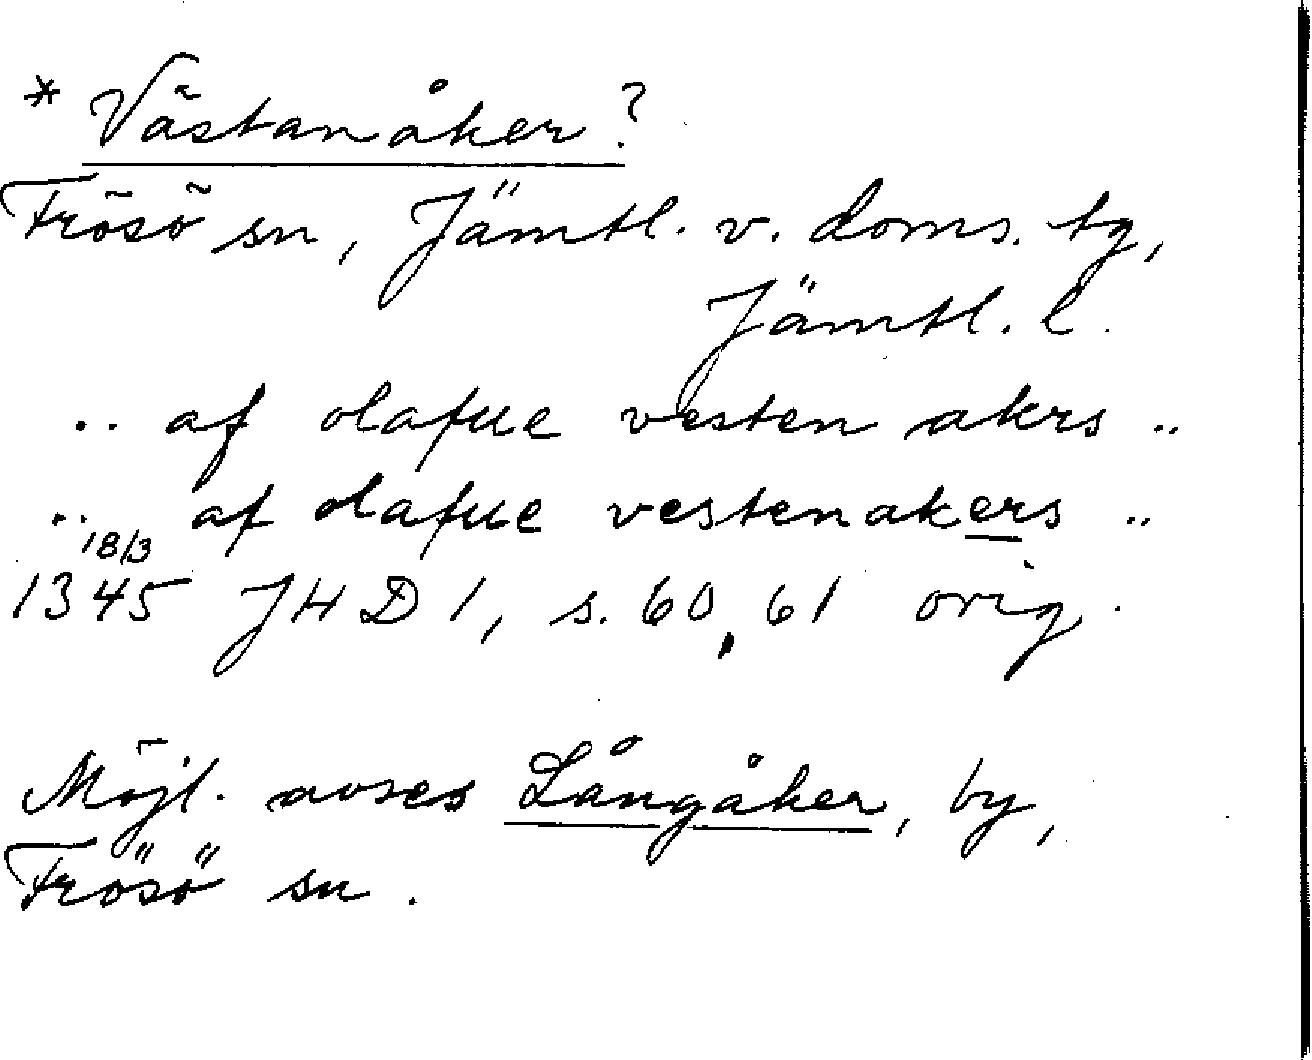 * Västanåker?
Frösö sn, Jämtl. v. doms. tg,
Jämtl. l.
.. af olafue vesten akrs ..
.. af olafue vestenakers ..
18/3
1345 JHD 1, s. 60, 61 orig.
Möjl. avses Långåker, by,
Frösö sn.